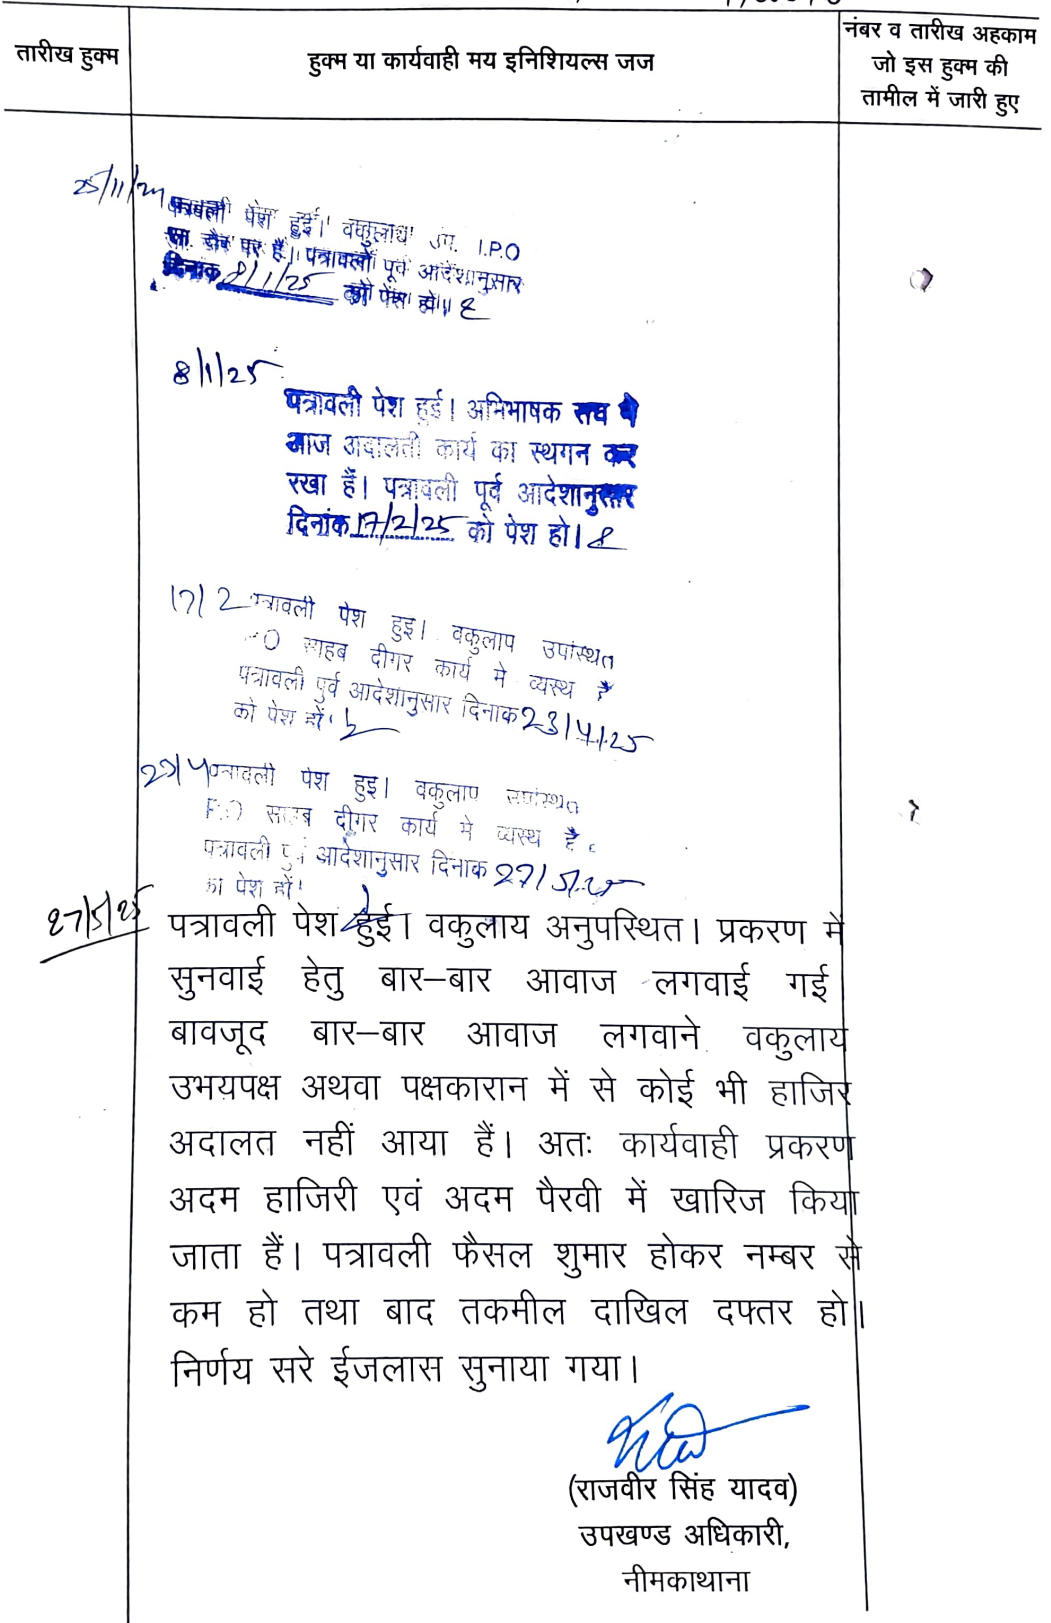 तारीख हुक्म
हुक्म या कार्यवाही मय इनिशियल्स जज
नंबर व तारीख अहकाम
जो इस हुक्म की
तामील में जारी हुए
25/11/24
पत्रावली पेश हुई। वकुलाय उप. I.P.O
सा. दौरे पर हैं। पत्रावली पूर्व आदेशानुसार
दिनांक 8/1/25 को पेश हो।
8/1/25
पत्रावली पेश हुई। अभिभाषक संघ ने
आज अदालती कार्य का स्थगन कर
रखा हैं। पत्रावली पूर्व आदेशानुसार
दिनांक 17/2/25 को पेश हो।
17/2 पत्रावली पेश हुइ। वकुलाप उपस्थित
साहब दीगर कार्य मे व्यस्थ है
पत्रावली पुर्व आदेशानुसार दिनाक 23/4/25
को पेश हों
23/4 पत्रावली पेश हुइ। वकुलाप उपस्थित
साहब दीगर कार्य मे व्यस्थ है
पत्रावली पुर्व आदेशानुसार दिनाक 27/5/25
का पेश हों
27/5/25
पत्रावली पेश हुई। वकुलाय अनुपस्थित। प्रकरण में
सुनवाई हेतु बार–बार आवाज लगवाई गई
बावजूद बार–बार आवाज लगवाने वकुलाय
उभयपक्ष अथवा पक्षकारान में से कोई भी हाजिर
अदालत नहीं आया हैं। अतः कार्यवाही प्रकरण
अदम हाजिरी एवं अदम पैरवी में खारिज किया
जाता हैं। पत्रावली फैसल शुमार होकर नम्बर से
कम हो तथा बाद तकमील दाखिल दफ्तर हो।
निर्णय सरे ईजलास सुनाया गया।
(राजवीर सिंह यादव)
उपखण्ड अधिकारी,
नीमकाथाना